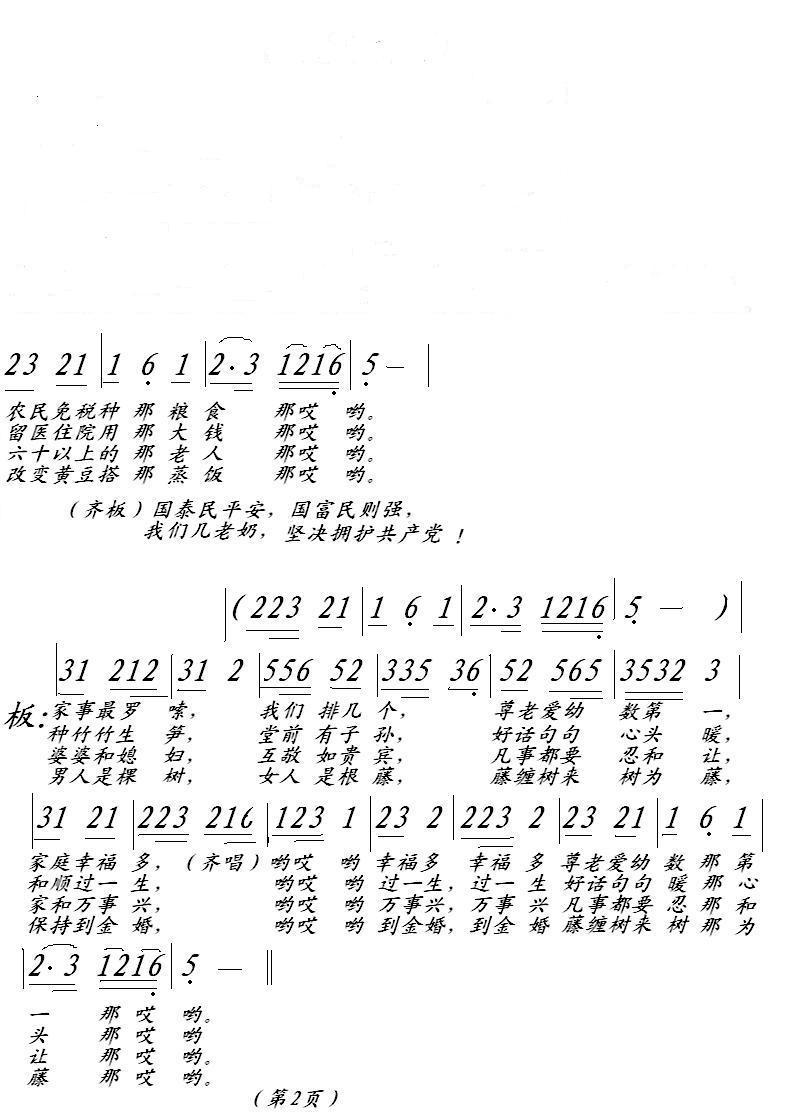 23 21 | 1 6 1 | 2·3 1216 | 5 — |
农民免税种 那 粮 食 那哎 哟。
留医住院用 那 大 钱 那哎 哟。
六十以上的 那 老 人 那哎 哟。
改变黄豆搭 那 蒸 饭 那哎 哟。
（齐板）国泰民平安，国富民则强，
我们几老奶，坚决拥护共产党！
| (223 21 | 1 6 1 | 2·3 1216 | 5 — ) |
| 31 212 | 31 2 | 556 52 | 335 36 | 52 565 | 3532 3 |
板：家事最罗 嗦， 我们 排几 个， 尊老爱幼 数第 一，
种竹竹生 笋， 堂前 有子 孙， 好话句句 心头 暖，
婆婆和媳 妇， 互敬 如贵 宾， 凡事都要 忍和 让，
男人是棵 树， 女人 是根 藤， 藤缠树来 树为 藤，
| 31 21 | 223 216 | 123 1 | 23 2 | 223 2 | 23 21 | 1 6 1 |
家庭幸福 多，（齐唱）哟哎 哟 幸福多 幸福 多 尊老爱幼 数 那 第
和顺过一 生， 哟哎 哟 过一生，过一 生 好话句句 暖 那 心
家和万事 兴， 哟哎 哟 万事兴，万事 兴 凡事都要 忍 那 和
保持到金 婚， 哟哎 哟 到金婚，到金 婚 藤缠树来 树 那 为
| 2·3 1216 | 5 — ||
一 那哎 哟。
头 那哎 哟
让 那哎 哟。
藤 那哎 哟。
（第2页）